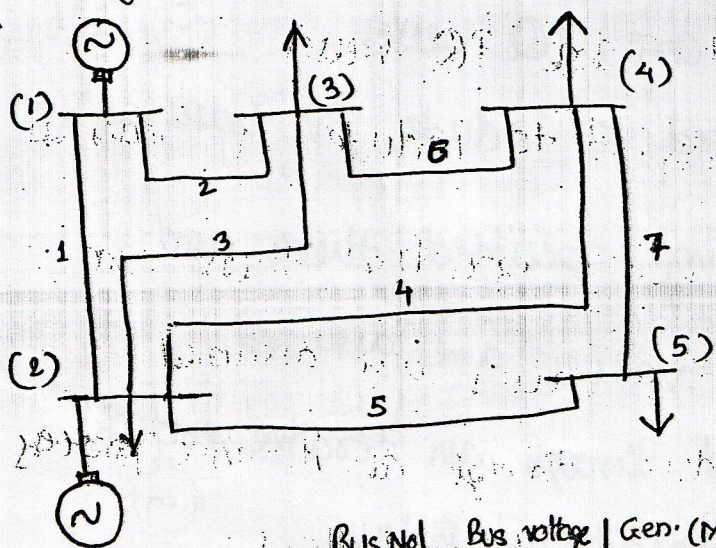 ~
(1)
(3)
(4)
2
6
1
3
7
4
(2)
(5)
5
~
Bus No Bus voltage | Gen. (M